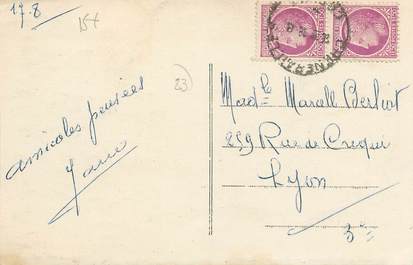 17.8
154
23
amicales pensées
Madlle Marcelle Berliot
259 Rue de Crequi
Lyon
3e